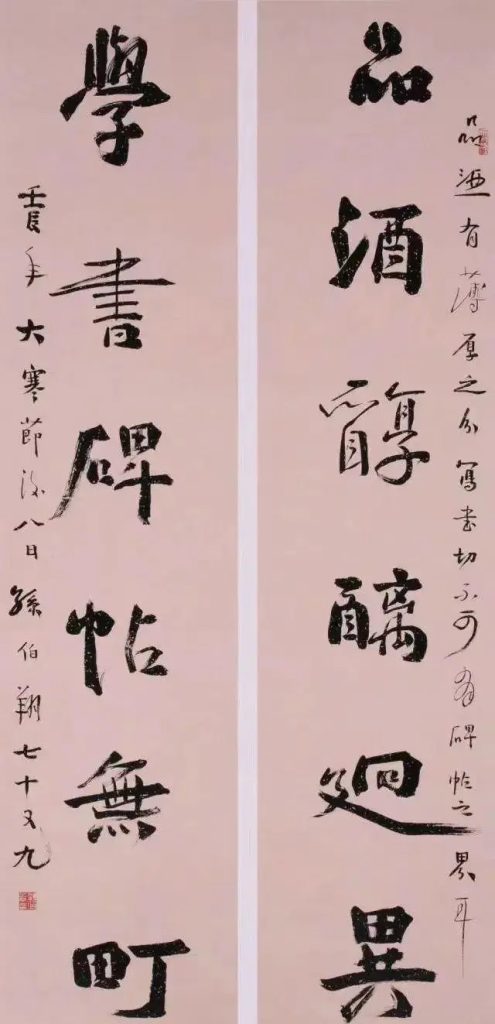 品酒醇醨廻異
學書碑帖無町
品酒有薄厚之分寫書切不可有碑帖之界耳
壬辰年大寒節後八日孫伯翔七十又九